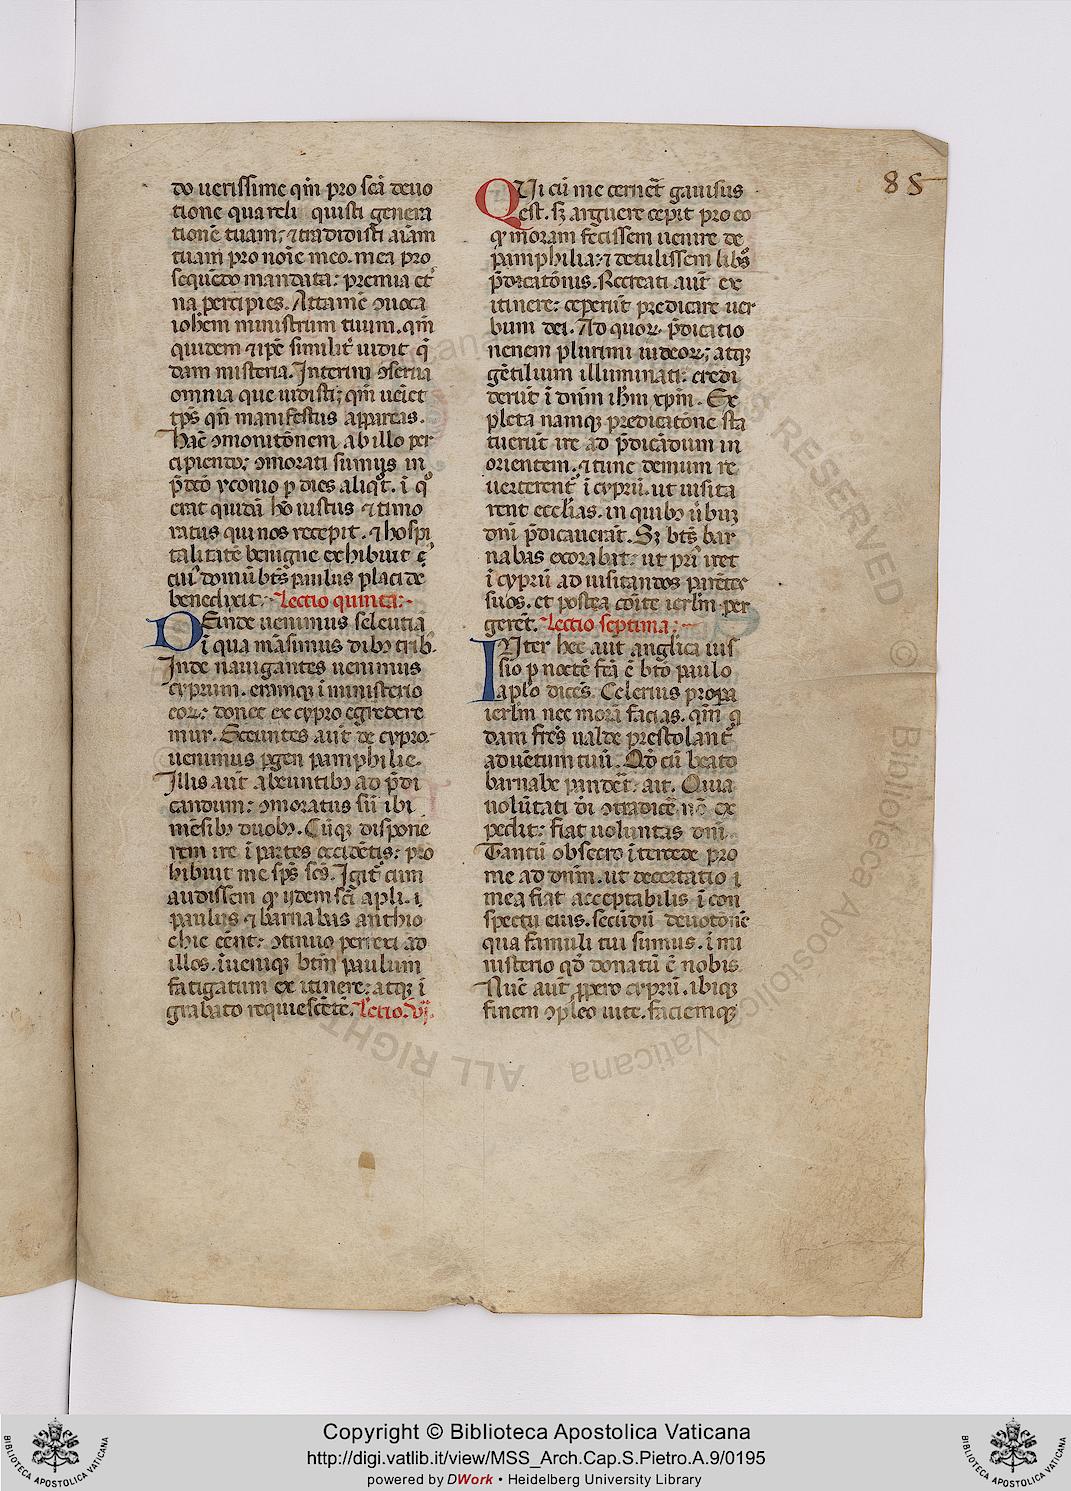 85
do uerissime qm̄ pro sc̄a deuo
tione qua reliquisti genera
tionē tuam; ⁊ tradidisti aīam
tuam pro noīe meo. mea pro
sequēdo mandata: premia et̾
na percipies. Attamē ɔuoca
ioh̄em ministrum tuum. qm̄
quidem ⁊ ip̄e similit̾ uidit q̄
dam misteria. Interim ɔserua
omnia que uidisti; qm̄ ueīet
tp̄s qn̄ manifestus appareas.
Hāc ɔmonitōnem ab illo per
cipiendo; ɔmorati sumus in
p̄dc̄o yconio p dies aliqt̾. ī qͦ
erat quidā hō iustus ⁊ timo
ratus qui nos recepit. ⁊ hospi
talitatē benigne exhibuit
cui̾ domū bt̄s paulus placide
benedixit. Lectio quinta.
DEinde uenimus seleutiā
ī qua māsimus dibꝫ trib.
Inde nauigantes uenimus
cyprum. eramq; ī ministerio
eoꝝ: donec ex cypro egredere
mur. Exeuntes aut̄ de cypro.
uenimus pgen pamphilie.
Illis aut̄ abeuntibꝫ ad p̄di
candum: ɔmoratus sū ibi
mēsibꝫ duobꝫ. Cūq; disponē
rem ire ī partes occidētis: pro
hibuit me sp̄s sc̄s. Igit̾ cum
audissem qͥ iidem sc̄i apl̄i. i.
paulus ⁊ barnabas anthio
chie eēnt: ɔtinuo perrexi ad
illos. īueniq; btm̄ paulum
fatigatum ex itinere: atq; ī
grabato requiescētē. Lectio. vj.
QUi cū me cerneret̾ gauisus
est. sꝫ arguere cepit pro eo
qͥ moram fecissem uenire de
pamphilia: ⁊ detulissem libꝫ
p̄dicatōnis. Recreati aut̄ ex
itinere: ceperūt predicare uer
bum dei. Ad quoꝝ p̄dicatio
nenem plurimi iudeoꝝ; atq;
gētilium illuminati: credi
derūt ī dn̄m ih̄m xp̄m. Ex
pleta namq; predicatōne sta
tuerūt ire ad p̄dicādum in
orientem. ⁊ tunc demum re
uerterent̾ ī cyprū. ut uisita
rent ecclīas. in quibꝫ ūbuꝫ
dn̄i p̄dicauerāt. Sꝫ bt̄s bar
nabas exorabat: ut pri̾ iret
ī cyprū ad uisitandos parētes
suos. et postea cōite ierl̄m per
gerēt. Lectio septima.
INter hec aut̄ anglica uis
sio p noctē fc̄a ē bt̄o paulo
aplō dicēs. Celerius propa
ierl̄m nec morā facias. qm̄ q̄
dam frēs ualde prestolant̾
aduētum tuū. Qd̾ cū beato
barnabe panderet̾. ait. Quia
uolūtati dī ɔtradicē nō ex
pedit: fiat uoluntas dn̄i.
Tantū obsecro ītercede pro
me ad dn̄m. ut decertatio
mea fiat acceptabilis ī con
spectu eius. secūdū deuotōnē
qua famuli tui sumus. ī mi
nisterio qd̾ donatū ē nobis.
Nūc aut̄ ppero cyprū. ibiq;
finem ɔpleo uite. faciemq;
Copyright © Biblioteca Apostolica Vaticana
http://digi.vatlib.it/view/MSS_Arch.Cap.S.Pietro.A.9/0195
powered by DWork • Heidelberg University Library